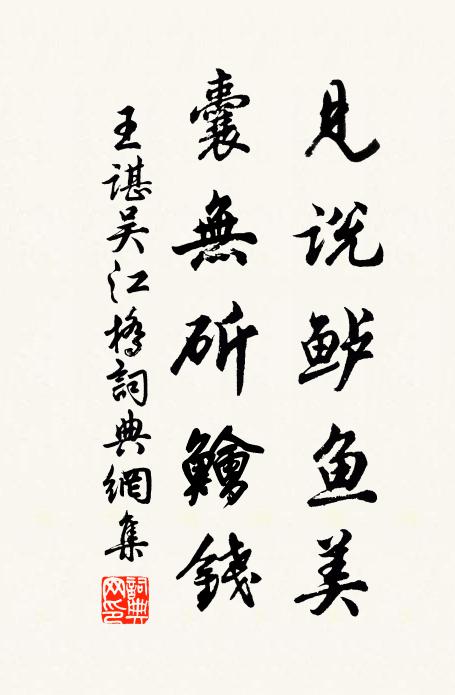 见说鲈鱼美
囊無斫鱠錢
王谌吴江橋詞典網集
詞典网印